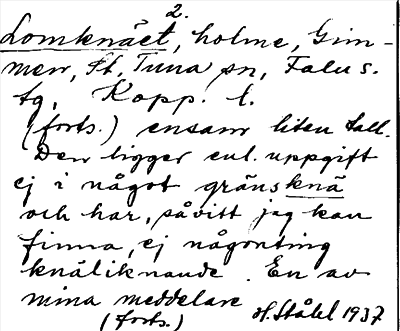 2.
Lomknäet, holme, Gim-
men, St. Tuna sn, Falu s.
tg, Kopp. l.
(forts.) ensam liten tall.
Den ligger enl. uppgift
ej i något gränsknä
och har, såvitt jag kan
finna, ej någonting
knäliknande. En av
mina meddelare
(forts.) H. Ståhl 1937